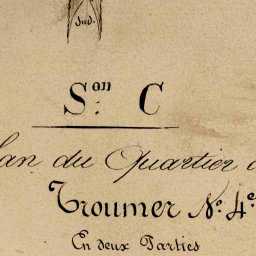 Sud.
Son C
lan du Quartier d
Troumer No. 4e
En deux Parties